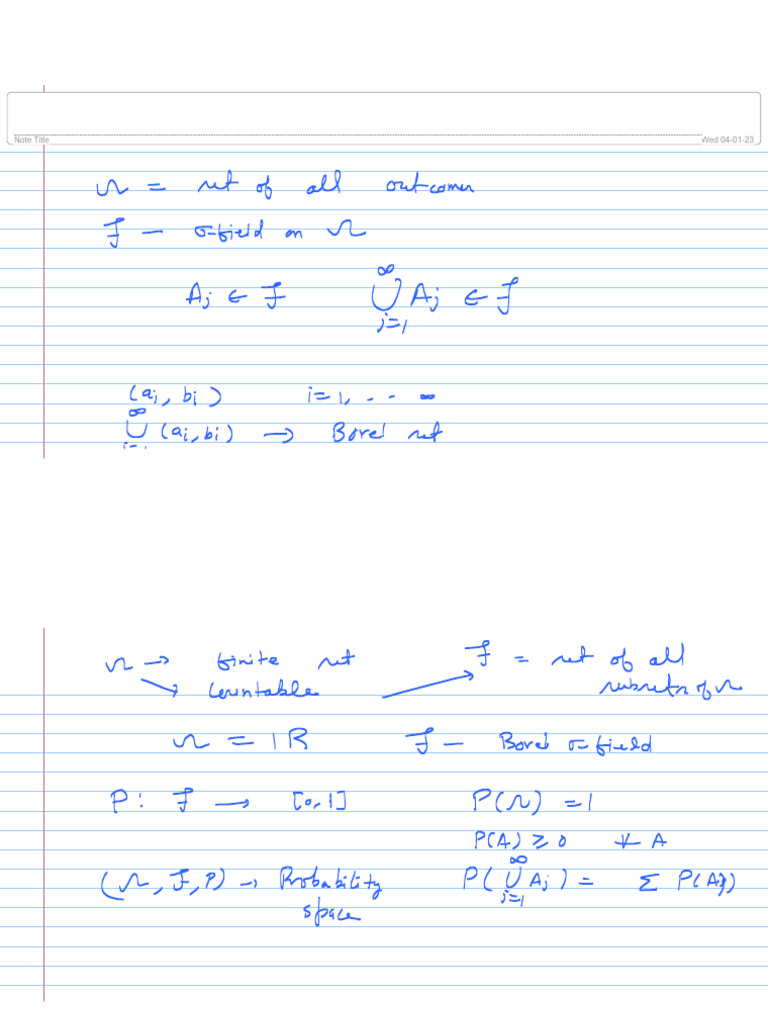 Note Title
Wed 04-01-23
Ω = set of all outcomes
F — σ-field on Ω
Aj ∈ F ∞⋃j=1 Aj ∈ F
(ai, bi) i=1, . . . ∞
∞⋃i=1 (ai, bi) → Borel set
Ω → finite set F = set of all
↘ Countable ↗ subsets of Ω
Ω = IR F — Borel σ-field
P: F → [0,1] P(Ω) = 1
P(A) ≥ 0 ∀ A
(Ω, F, P) → Probability P(∞⋃j=1 Aj) = Σ P(Aj)
space